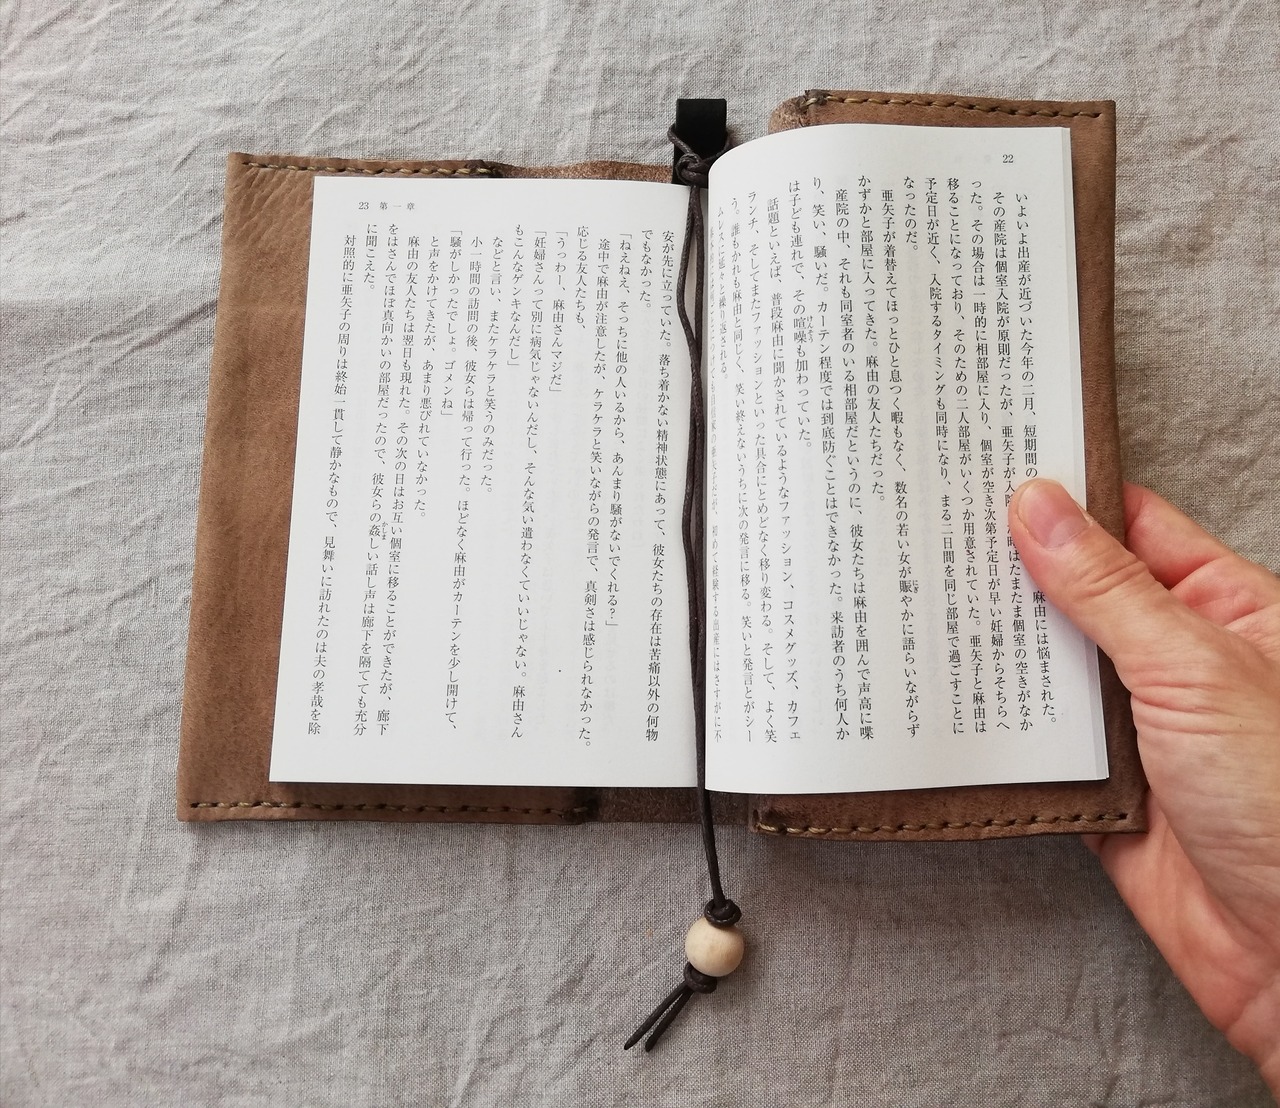 22
いよいよ出産が近づいた今年の二月、短期間の 麻由には悩まされた。
その産院は個室入院が原則だったが、亜矢子が入 時はたまたま個室の空きがなか
った。その場合は一時的に相部屋に入り、個室が空き次第予定日が早い妊婦からそちらへ
移ることになっており、そのための二人部屋がいくつか用意されていた。亜矢子と麻由は
予定日が近く、入院するタイミングも同時になり、まる二日間を同じ部屋で過ごすことに
なったのだ。
亜矢子が着替えてほっとひと息つく暇もなく、数名の若い女が賑やかに語らいながらず
かずかと部屋に入ってきた。麻由の友人たちだった。
産院の中、それも同室者のいる相部屋だというのに、彼女たちは麻由を囲んで声高に喋
り、笑い、騒いだ。カーテン程度では到底防ぐことはできなかった。来訪者のうち何人か
は子ども連れで、その喧噪も加わっていた。
話題といえば、普段麻由に聞かされているようなファッション、コスメグッズ、カフェ
ランチ、そしてまたファッションといった具合にとめどなく移り変わる。そして、よく笑
う。誰もかれも麻由と同じく、笑い終えないうちに次の発言に移る。笑いと発言とがシー
ムレスに延々と繰り返される。
経験する出産にはさすがに不
23 第一章
安が先に立っていた。落ち着かない精神状態にあって、彼女たちの存在は苦痛以外の何物
でもなかった。
「ねえねえ、そっちに他の人いるから、あんまり騒がないでくれる?」
途中で麻由が注意したが、ケラケラと笑いながらの発言で、真剣さは感じられなかった。
応じる友人たちも、
「うっわー、麻由さんマジだ」
「妊婦さんって別に病気じゃないんだし、そんな気い遣わなくていいじゃない。麻由さん
もこんなゲンキなんだし」
などと言い、またケラケラと笑うのみだった。
小一時間の訪問の後、彼女らは帰って行った。ほどなく麻由がカーテンを少し開けて、
「騒がしかったでしょ。ゴメンね」
と声をかけてきたが、あまり悪びれていなかった。
麻由の友人たちは翌日も現れた。その次の日はお互い個室に移ることができたが、廊下
をはさんでほぼ真向かいの部屋だったので、彼女らの姦しい話し声は廊下を隔てても充分
に聞こえた。
対照的に亜矢子の周りは終始一貫して静かなもので、見舞いに訪れたのは夫の孝哉を除